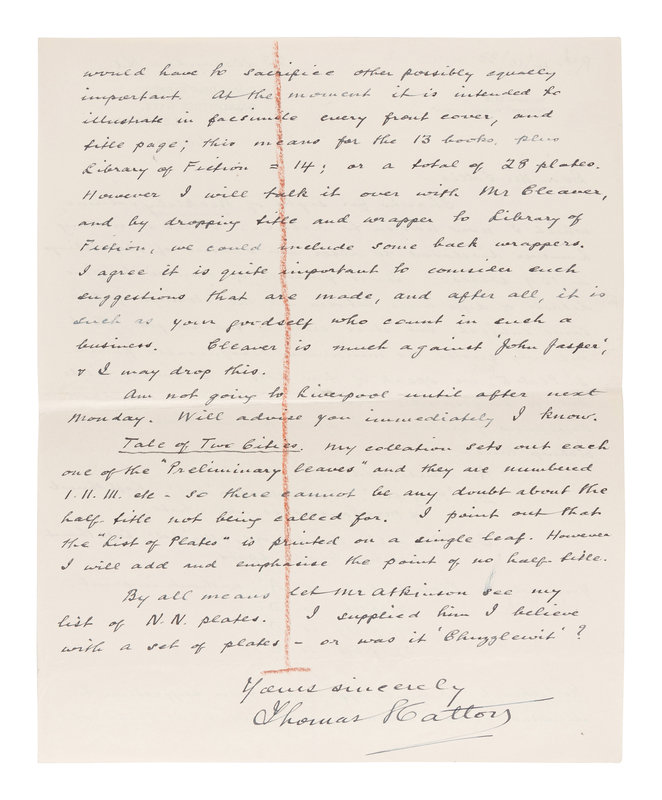 would have to sacrifice other possibly equally
important. At the moment it is intended to
illustrate in facsimile every front cover, and
title page; this means for the 13 books, plus
Library of Fiction = 14; or a total of 28 plates.
However I will talk it over with Mr Cleaver,
and by dropping title and wrapper to Library of
Fiction, we could include some back wrappers.
I agree it is quite important to consider such
suggestions that are made, and after all, it is
such as your goodself who count in such a
business. Cleaver is much against 'John Jasper',
& I may drop this.
Am not going to Liverpool until after next
Monday. Will advise you immediately I know.
Tale of Two Cities. My collation sets out each
one of the "Preliminary leaves" and they are numbered
I. II. III. etc - so there cannot be any doubt about the
half-title not being called for. I point out that
the "List of Plates" is printed on a single leaf. However
I will add and emphasise the point of no half-title.
By all means let Mr Atkinson see my
list of N.N. plates. I supplied him I believe
with a set of plates - or was it 'Chuzzlewit'?
Yours sincerely
Thomas Hatton